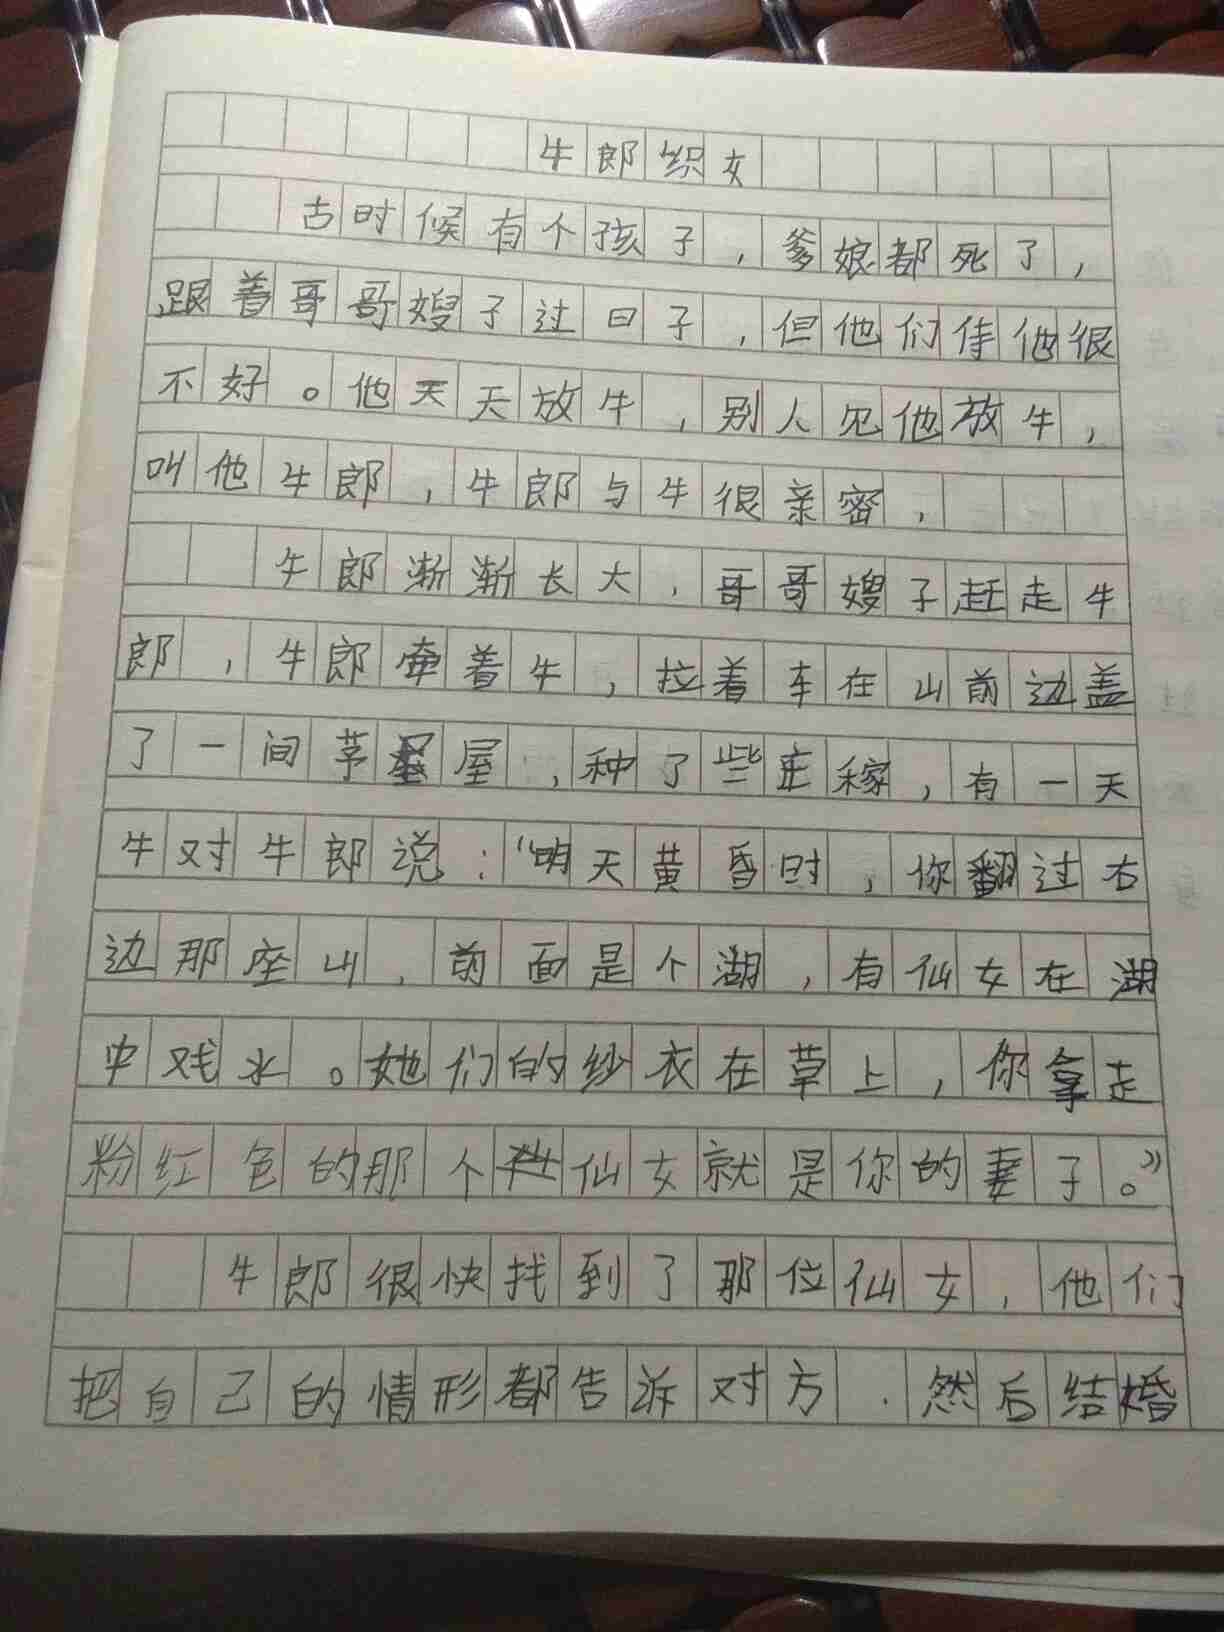 牛郎织女
古时候有个孩子，爹娘都死了，
跟着哥哥嫂子过日子，但他们待他很
不好。他天天放牛，别人见他放牛，
叫他牛郎，牛郎与牛很亲密，
牛郎渐渐长大，哥哥嫂子赶走牛
郎，牛郎牵着牛，拉着车在山前边盖
了一间茅屋，种了些庄稼，有一天
牛对牛郎说：“明天黄昏时，你翻过右
边那座山，前面是个湖，有仙女在湖
中戏水。她们的纱衣在草上，你拿走
粉红色的那个仙女就是你的妻子。”
牛郎很快找到了那位仙女，他们
把自己的情形都告诉对方．然后结婚